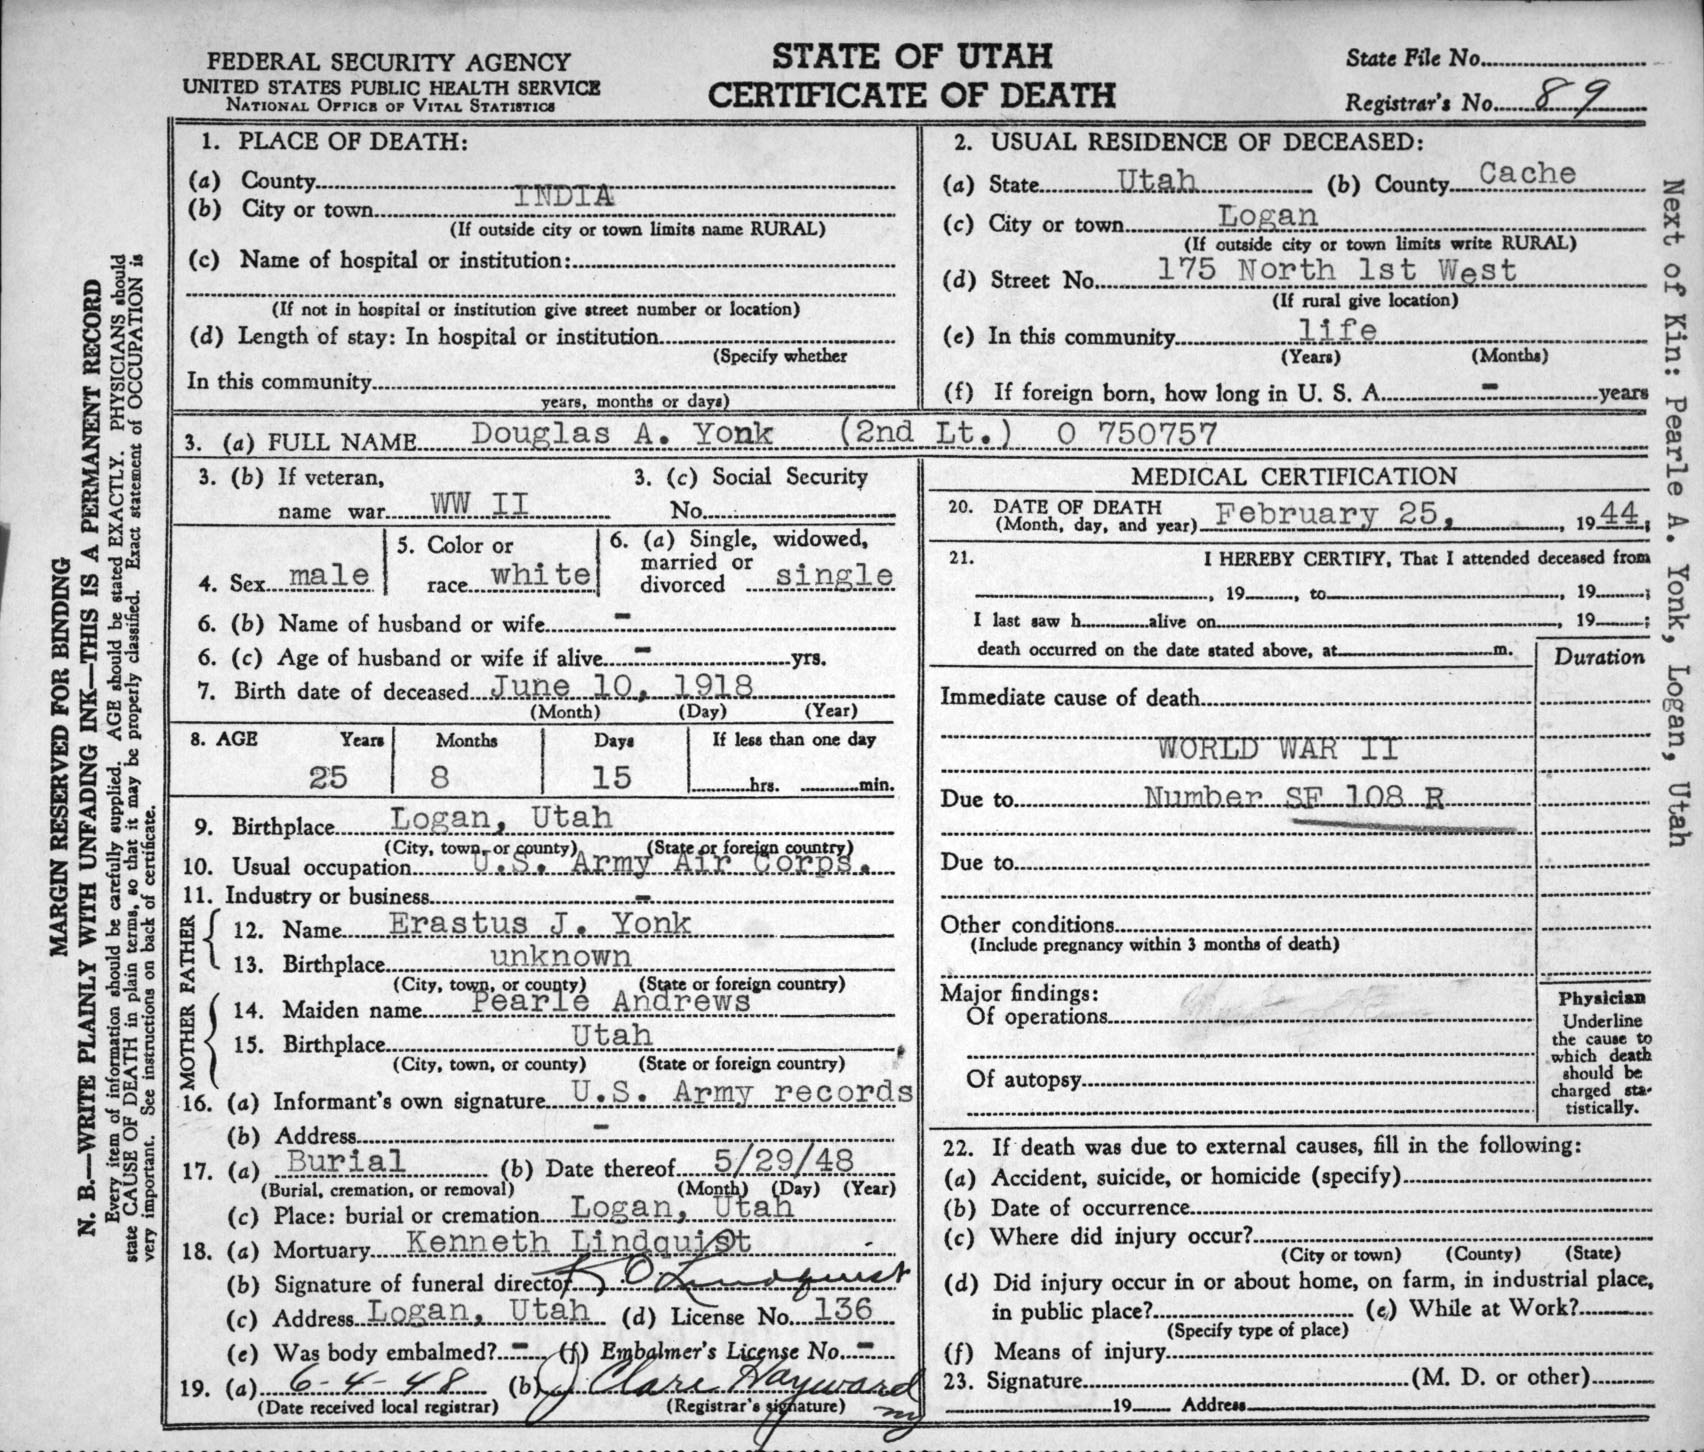 FEDERAL SECURITY AGENCY
UNITED STATES PUBLIC HEALTH SERVICE
NATIONAL OFFICE OF VITAL STATISTICS
STATE OF UTAH
CERTIFICATE OF DEATH
State File No.
Registrar's No. 89
MARGIN RESERVED FOR BINDING
N. B.—WRITE PLAINLY WITH UNFADING INK—THIS IS A PERMANENT RECORD
Every item of information should be carefully supplied. AGE should be stated EXACTLY. PHYSICIANS should
state CAUSE OF DEATH in plain terms, so that it may be properly classified. Exact statement of OCCUPATION is
very important. See instructions on back of certificate.
1. PLACE OF DEATH:
(a) County
(b) City or town INDIA
(If outside city or town limits name RURAL)
(c) Name of hospital or institution:
(If not in hospital or institution give street number or location)
(d) Length of stay: In hospital or institution
(Specify whether
In this community
years, months or days)
2. USUAL RESIDENCE OF DECEASED:
(a) State Utah (b) County Cache
(c) City or town Logan
(If outside city or town limits write RURAL)
(d) Street No. 175 North 1st West
(If rural give location)
(e) In this community life
(Years) (Months)
(f) If foreign born, how long in U. S. A. - years
3. (a) FULL NAME Douglas A. Yonk (2nd Lt.) O 750757
3. (b) If veteran,
name war WW II
3. (c) Social Security
No.
4. Sex male
5. Color or
race white
6. (a) Single, widowed,
married or
divorced single
6. (b) Name of husband or wife -
6. (c) Age of husband or wife if alive - yrs.
7. Birth date of deceased June 10, 1918
(Month) (Day) (Year)
8. AGE Years Months Days If less than one day
25 8 15 hrs. min.
9. Birthplace Logan, Utah
(City, town, or county) (State or foreign country)
10. Usual occupation U.S. Army Air Corps.
11. Industry or business -
FATHER
12. Name Erastus J. Yonk
13. Birthplace unknown
(City, town, or county) (State or foreign country)
MOTHER
14. Maiden name Pearle Andrews
15. Birthplace Utah
(City, town, or county) (State or foreign country)
16. (a) Informant's own signature U.S. Army records
(b) Address -
17. (a) Burial (b) Date thereof 5/29/48
(Burial, cremation, or removal) (Month) (Day) (Year)
(c) Place: burial or cremation Logan, Utah
18. (a) Mortuary Kenneth Lindquist
(b) Signature of funeral director K O Lindquist
(c) Address Logan, Utah (d) License No. 136
(e) Was body embalmed? - (f) Embalmer's License No. -
19. (a) 6-4-48 (b) J Clare Hayward
(Date received local registrar) (Registrar's signature)
MEDICAL CERTIFICATION
20. DATE OF DEATH
(Month, day, and year) February 25, , 1944;
21. I HEREBY CERTIFY, That I attended deceased from
, 19 , to , 19 ;
I last saw h alive on , 19 ;
death occurred on the date stated above, at m.
Duration
Immediate cause of death
WORLD WAR II
Due to Number SF 108 R
Due to
Other conditions
(Include pregnancy within 3 months of death)
Major findings:
Of operations
Of autopsy
Physician
Underline
the cause to
which death
should be
charged sta-
tistically.
22. If death was due to external causes, fill in the following:
(a) Accident, suicide, or homicide (specify)
(b) Date of occurrence
(c) Where did injury occur?
(City or town) (County) (State)
(d) Did injury occur in or about home, on farm, in industrial place,
in public place? (e) While at Work?
(Specify type of place)
(f) Means of injury
23. Signature (M. D. or other)
19 Address
Next of Kin: Pearle A. Yonk, Logan, Utah